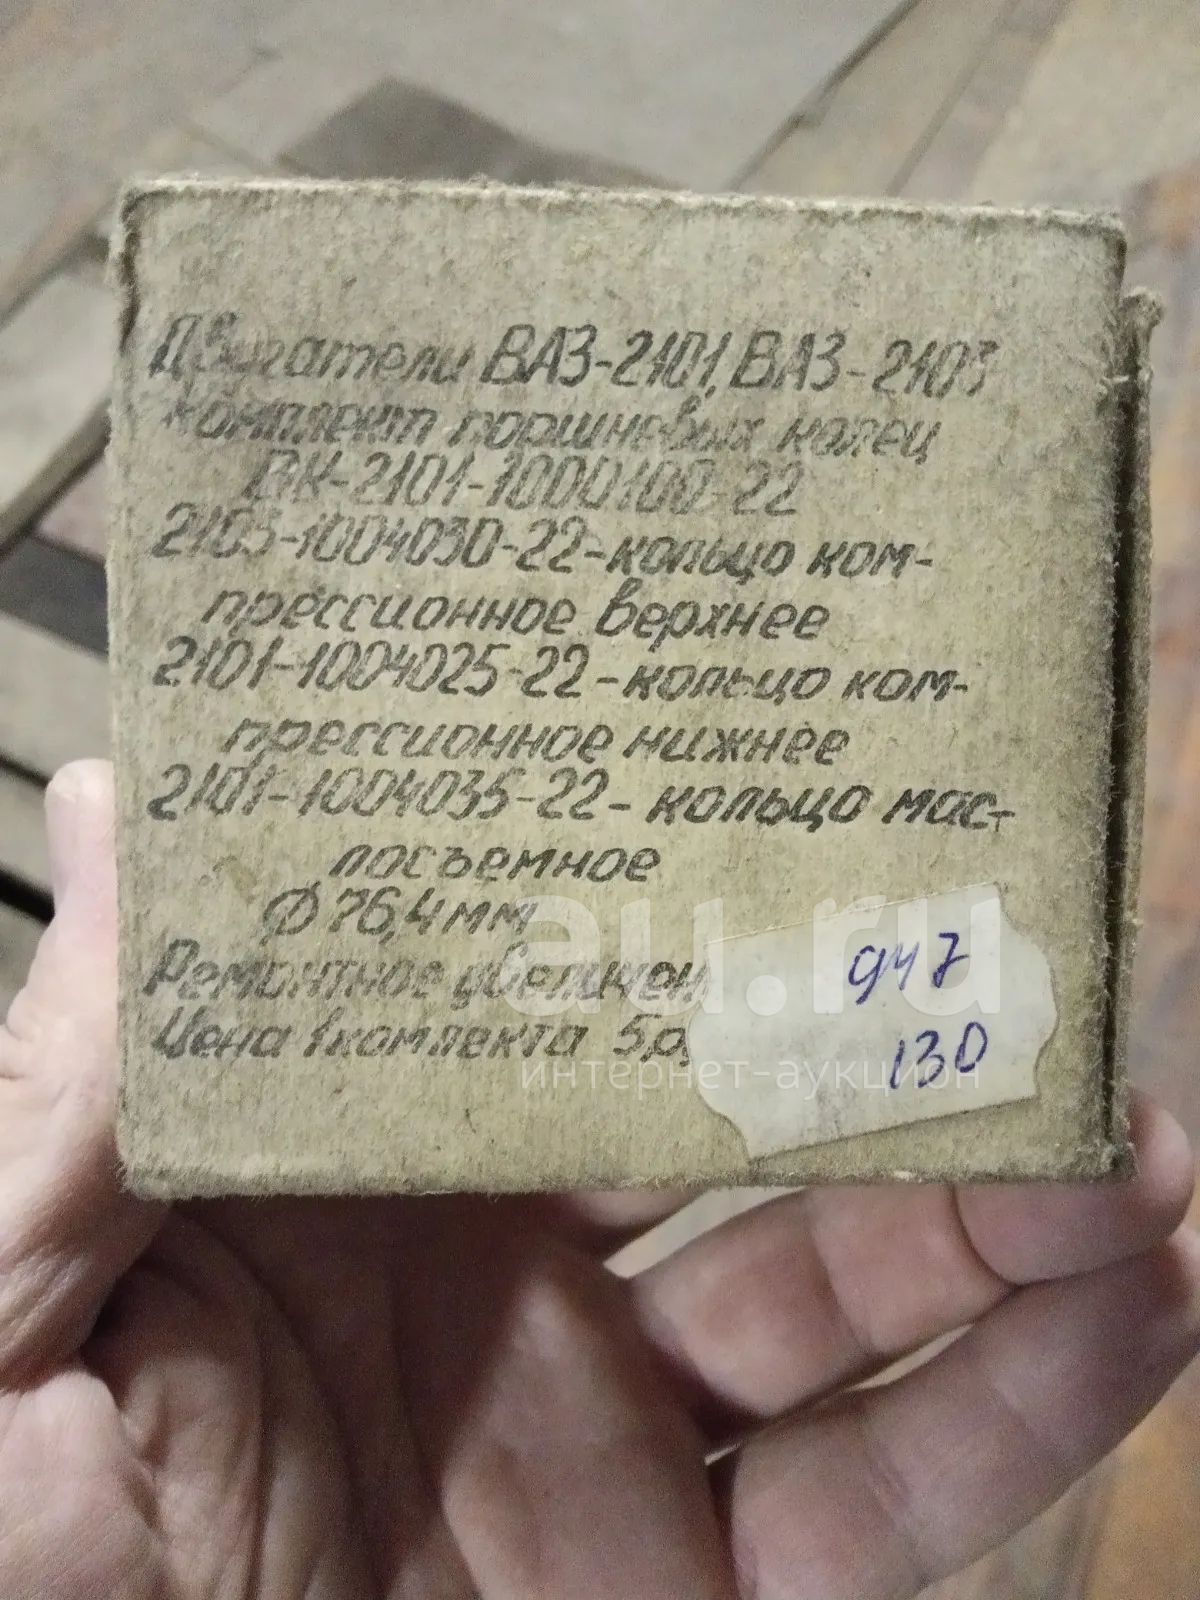 Двигатели ВАЗ-2101, ВАЗ-2103
Комплект поршневых колец
ВК-2101-1000100-22
2103-1004030-22-кольцо ком-
прессионное верхнее
2101-1004025-22-кольцо ком-
прессионное нижнее
2101-1004035-22-кольцо мас-
лосъемное
Ф 76,4мм
Ремонтное увеличен
Цена 1комплекта 5р,
947
130
au.ru
интернет-аукцион